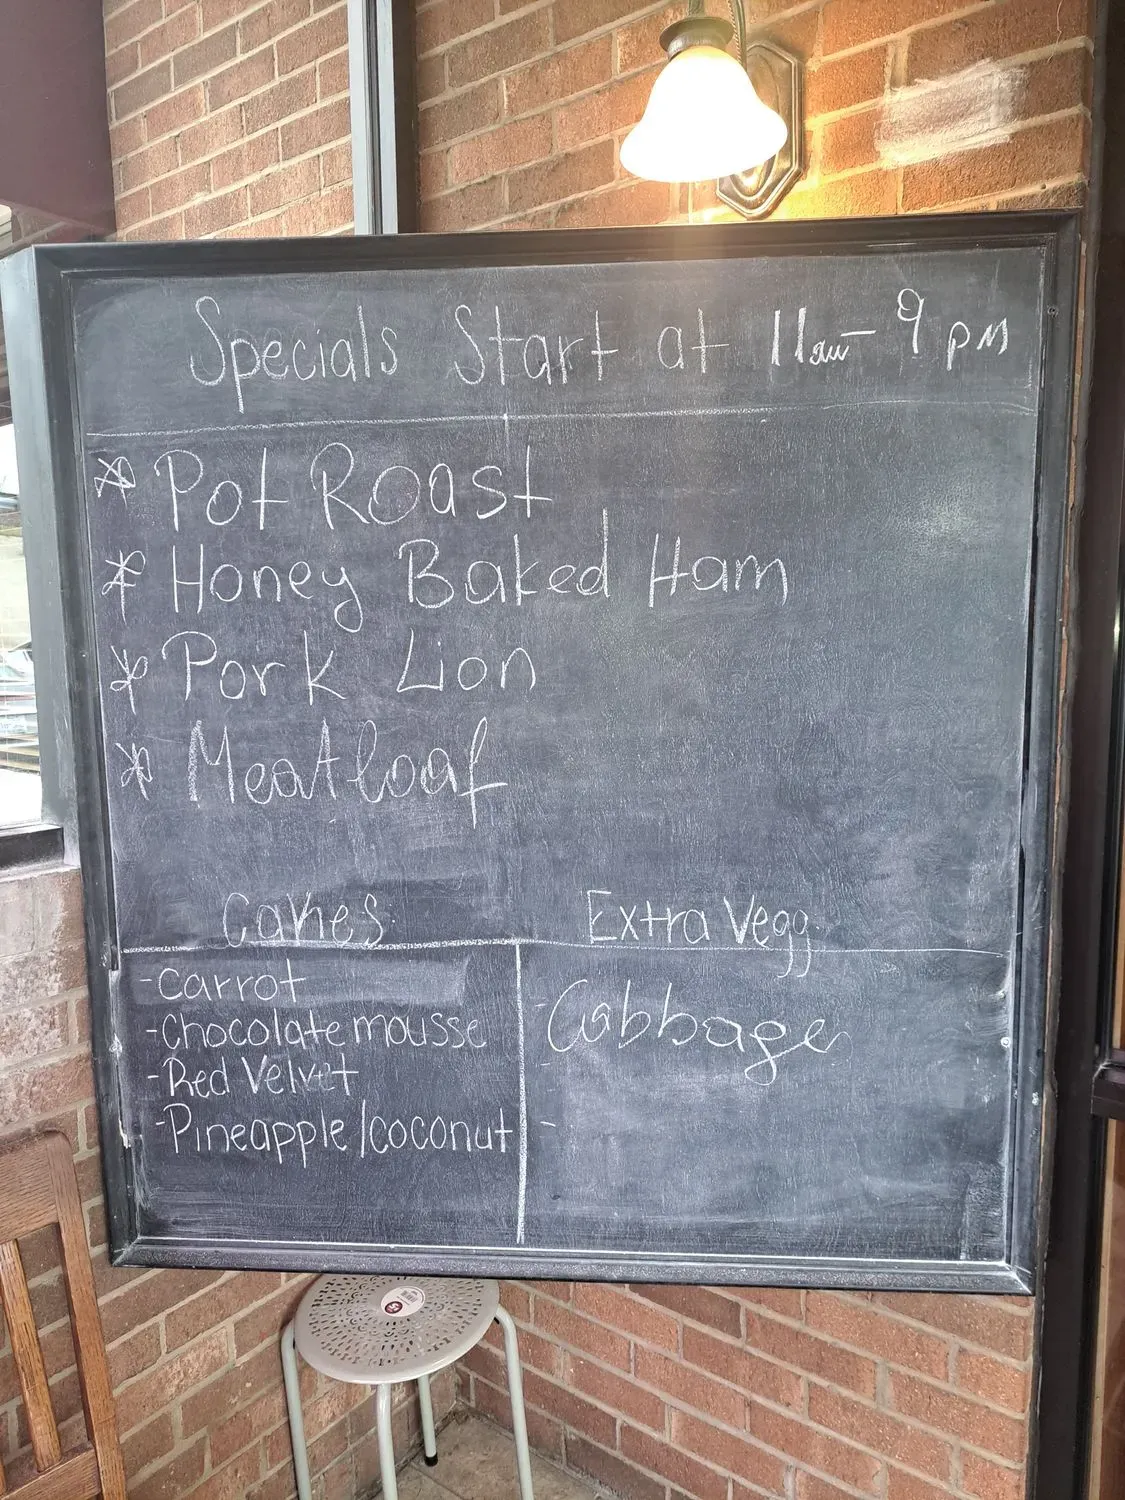 Specials Start at 11am-9pm
* Pot Roast
* Honey Baked Ham
* Pork Lion
* Meatloaf
Cakes
-Carrot
-Chocolate mousse
-Red Velvet
-Pineapple/coconut
Extra Vegg.
-Cabbage
-